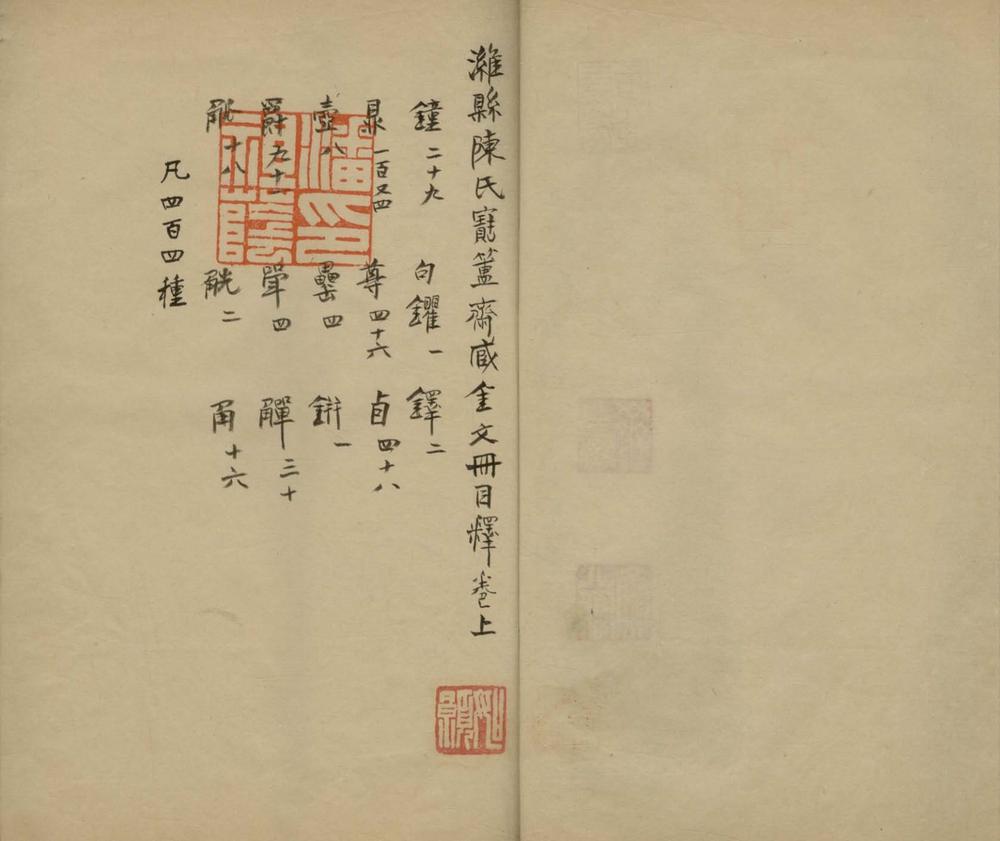 濰縣陳氏寶簠齋臧金文冊目釋卷上
鐘二十九 句鑃一 鐸二
鼎一百又四 尊四十六 卣四十八
壺八 罍四 鉼一
爵九十一 斝四 觶三十
觚十八 觥二 角十六
凡四百四種
潘印祖蔭